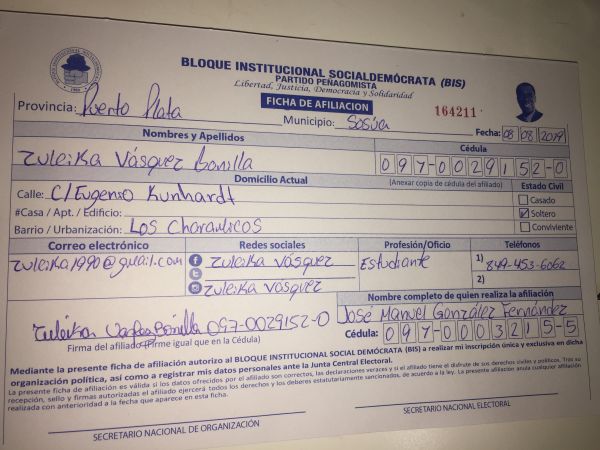 BLOQUE INSTITUCIONAL SOCIALDEMÓCRATA (BIS)
PARTIDO PEÑAGOMISTA
Libertad, Justicia, Democracia y Solidaridad
FICHA DE AFILIACION
164211
Provincia: Puerto Plata
Municipio: Sosúa
Fecha: 08 08 2019
Nombres y Apellidos
Cédula
Zuleika Vásquez Bonilla
097-0029152-0
Domicilio Actual
(Anexar copia de cédula del afiliado)
Estado Civil
Calle: C/Eugenio Kunhardt
Casado
#Casa / Apt. / Edificio:
Soltero
Barrio / Urbanización: Los Charamicos
Conviviente
Correo electrónico
Redes sociales
Profesión/Oficio
Teléfonos
zuleika1990@gmail.com
Zuleika Vásquez
Estudiante
1) 849-453-6062
2)
Zuleika Vásquez
Nombre completo de quien realiza la afiliación
José Manuel González Fernández
097-0029152-0
Firma del afiliado (Firme igual que en la Cédula)
Cédula: 097-0003215-5
Mediante la presente ficha de afiliación autorizo al BLOQUE INSTITUCIONAL SOCIAL DEMÓCRATA (BIS) a realizar mi inscripción única y exclusiva en dicha
organización política, así como a registrar mis datos personales ante la Junta Central Electoral.
La presente ficha de afiliación es válida si los datos ofrecidos por el afiliado son correctos, las declaraciones veraces y si el afiliado tiene el disfrute de sus derechos civiles y políticos. Tras su
recepción, sello y firmas autorizadas el afiliado ejercerá todos los derechos y los deberes estatutariamente sancionados, de acuerdo a la ley. La presente afiliación anula cualquier afiliación
realizada con anterioridad a la fecha que aparece en esta ficha.
SECRETARIO NACIONAL DE ORGANIZACIÓN
SECRETARIO NACIONAL ELECTORAL